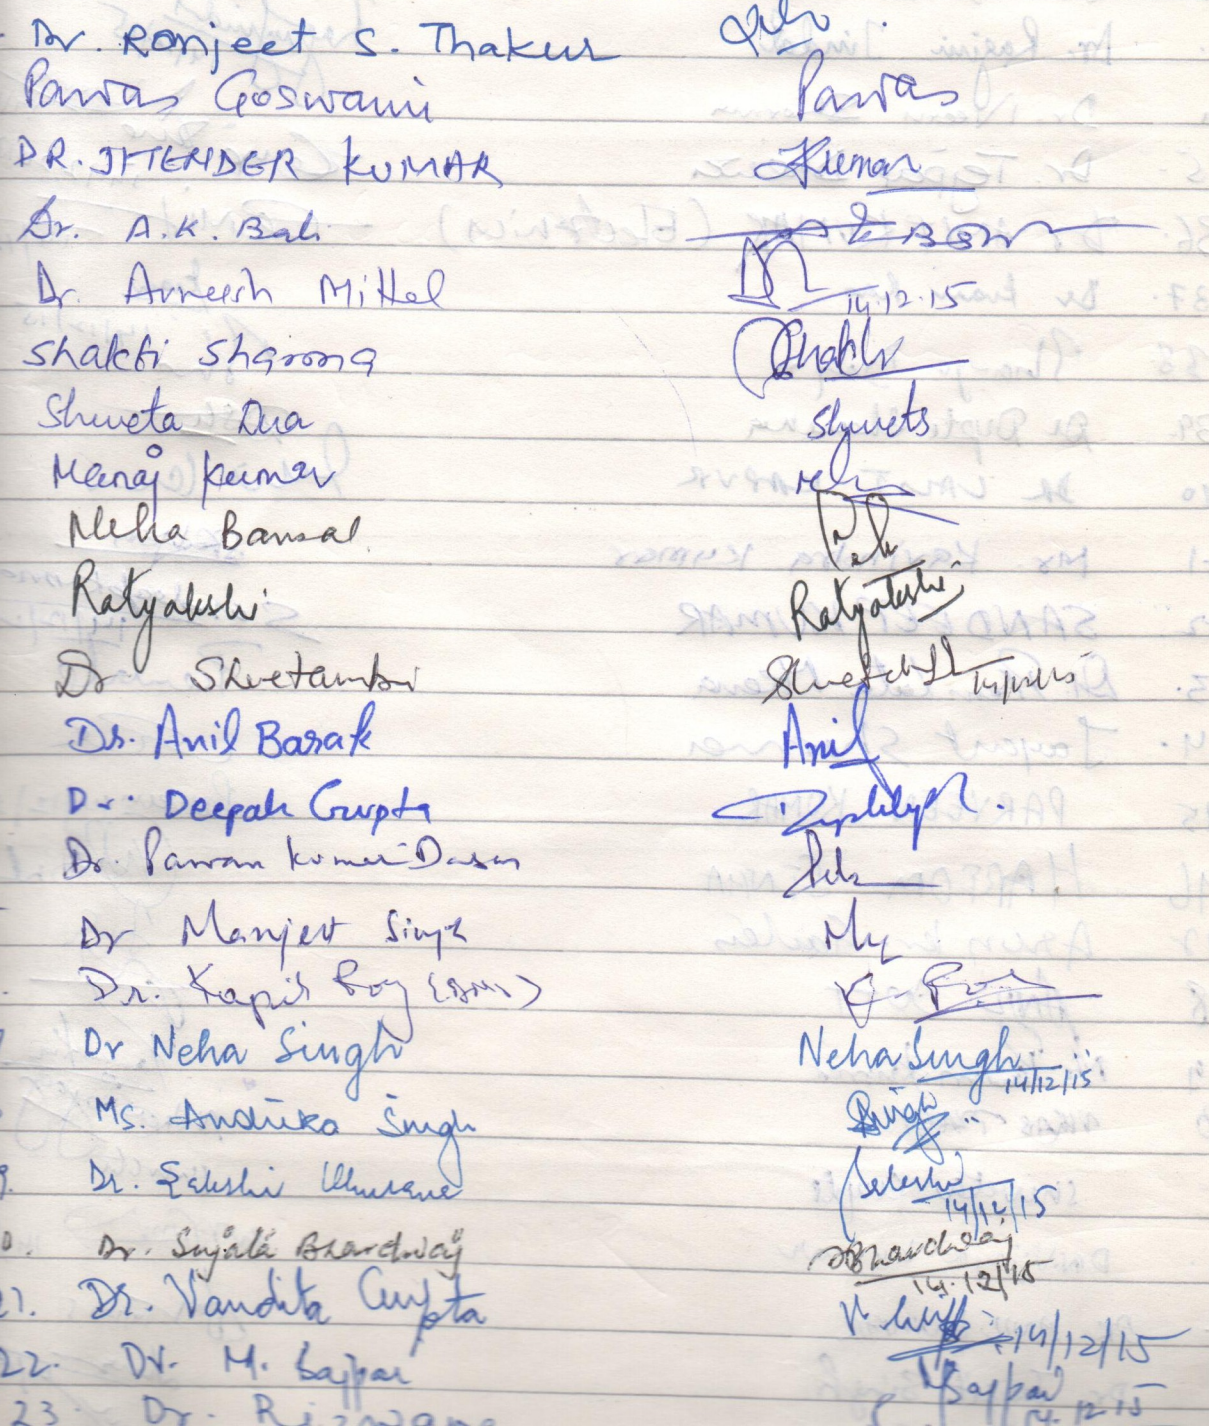 Dr. Ronjeet S. Thakur
Pawas Goswami Pawas
DR. JITENDER KUMAR Kumar
Dr. A.K. Bali
Dr. Avneesh Mittal 14.12.15
Shakti Sharma Shakti
Shweta Dua Shweta
Manoj Kumar
Neha Bansal
Ratyakshi Ratyakshi
Dr Shvetambri 14/12/15
Dr. Anil Barak Anil
Dr. Deepak Gupta
Dr. Pawan Kumar
Dr Manjeet Singh
Dr. Kapil Roy
Dr Neha Singh Neha Singh 14/12/15
Ms. Anshika Singh Singh
Dr. Sakshi Khurana Sakshi 14/12/15
Dr. Sujata Bhardwaj Bhardwaj 14.12/15
21. Dr. Vandita Gupta 14/12/15
22. Dr. M. Bajpai Bajpai
23. Dr. 14.12.15